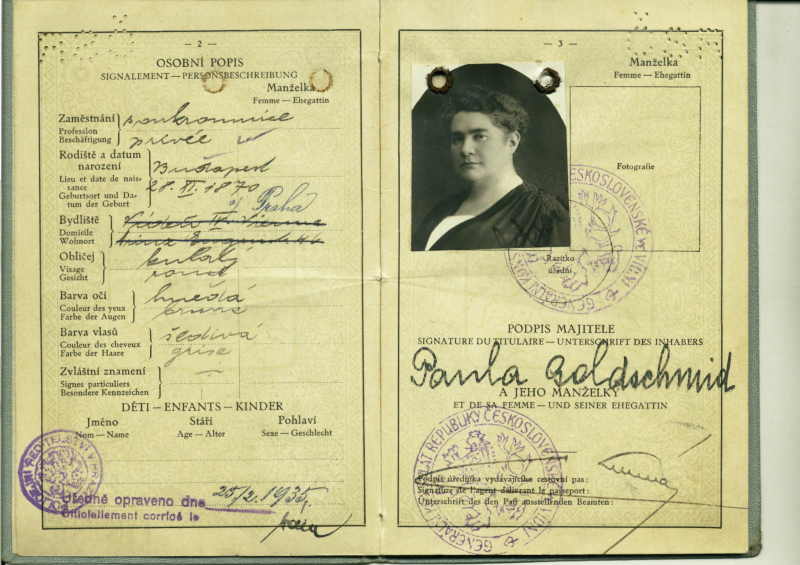 — 2 —
OSOBNÍ POPIS
SIGNALEMENT — PERSONSBESCHREIBUNG
Manželka
Femme — Ehegattin
Zaměstnání
Profession
Beschäftigung
soukromnice
privée
Rodiště a datum
narození
Lieu et date de nais-
sance
Geburtsort und Da-
tum der Geburt
Budapest
28. XI. 1870
Praha
Bydliště
Domicile
Wohnort
Vídeň IV. Vienne
Obličej
Visage
Gesicht
kulatý
rond
Barva očí
Couleur des yeux
Farbe der Augen
hnědá
brune
Barva vlasů
Couleur des cheveux
Farbe der Haare
šedivá
grise
Zvláštní znamení
Signes particuliers
Besondere Kennzeichen
—
DĚTI — ENFANTS — KINDER
Jméno Stáří Pohlaví
Nom — Name Age — Alter Sexe — Geschlecht
Úředně opraveno dne 25/2. 1935,
Officiellement corrigé le
— 3 —
Manželka
Femme — Ehegattin
Fotografie
Razítko
úřední
PODPIS MAJITELE
SIGNATURE DU TITULAIRE — UNTERSCHRIFT DES INHABERS
Paula Goldschmid
A JEHO MANŽELKY
ET DE SA FEMME — UND SEINER EHEGATTIN
REPUBLIKY ČESKOSLOVENSKÉ
Podpis úředníka vydávajícího cestovní pas:
Signature de l'agent délivrant le passeport:
Unterschrift des den Paß ausstellenden Beamten: